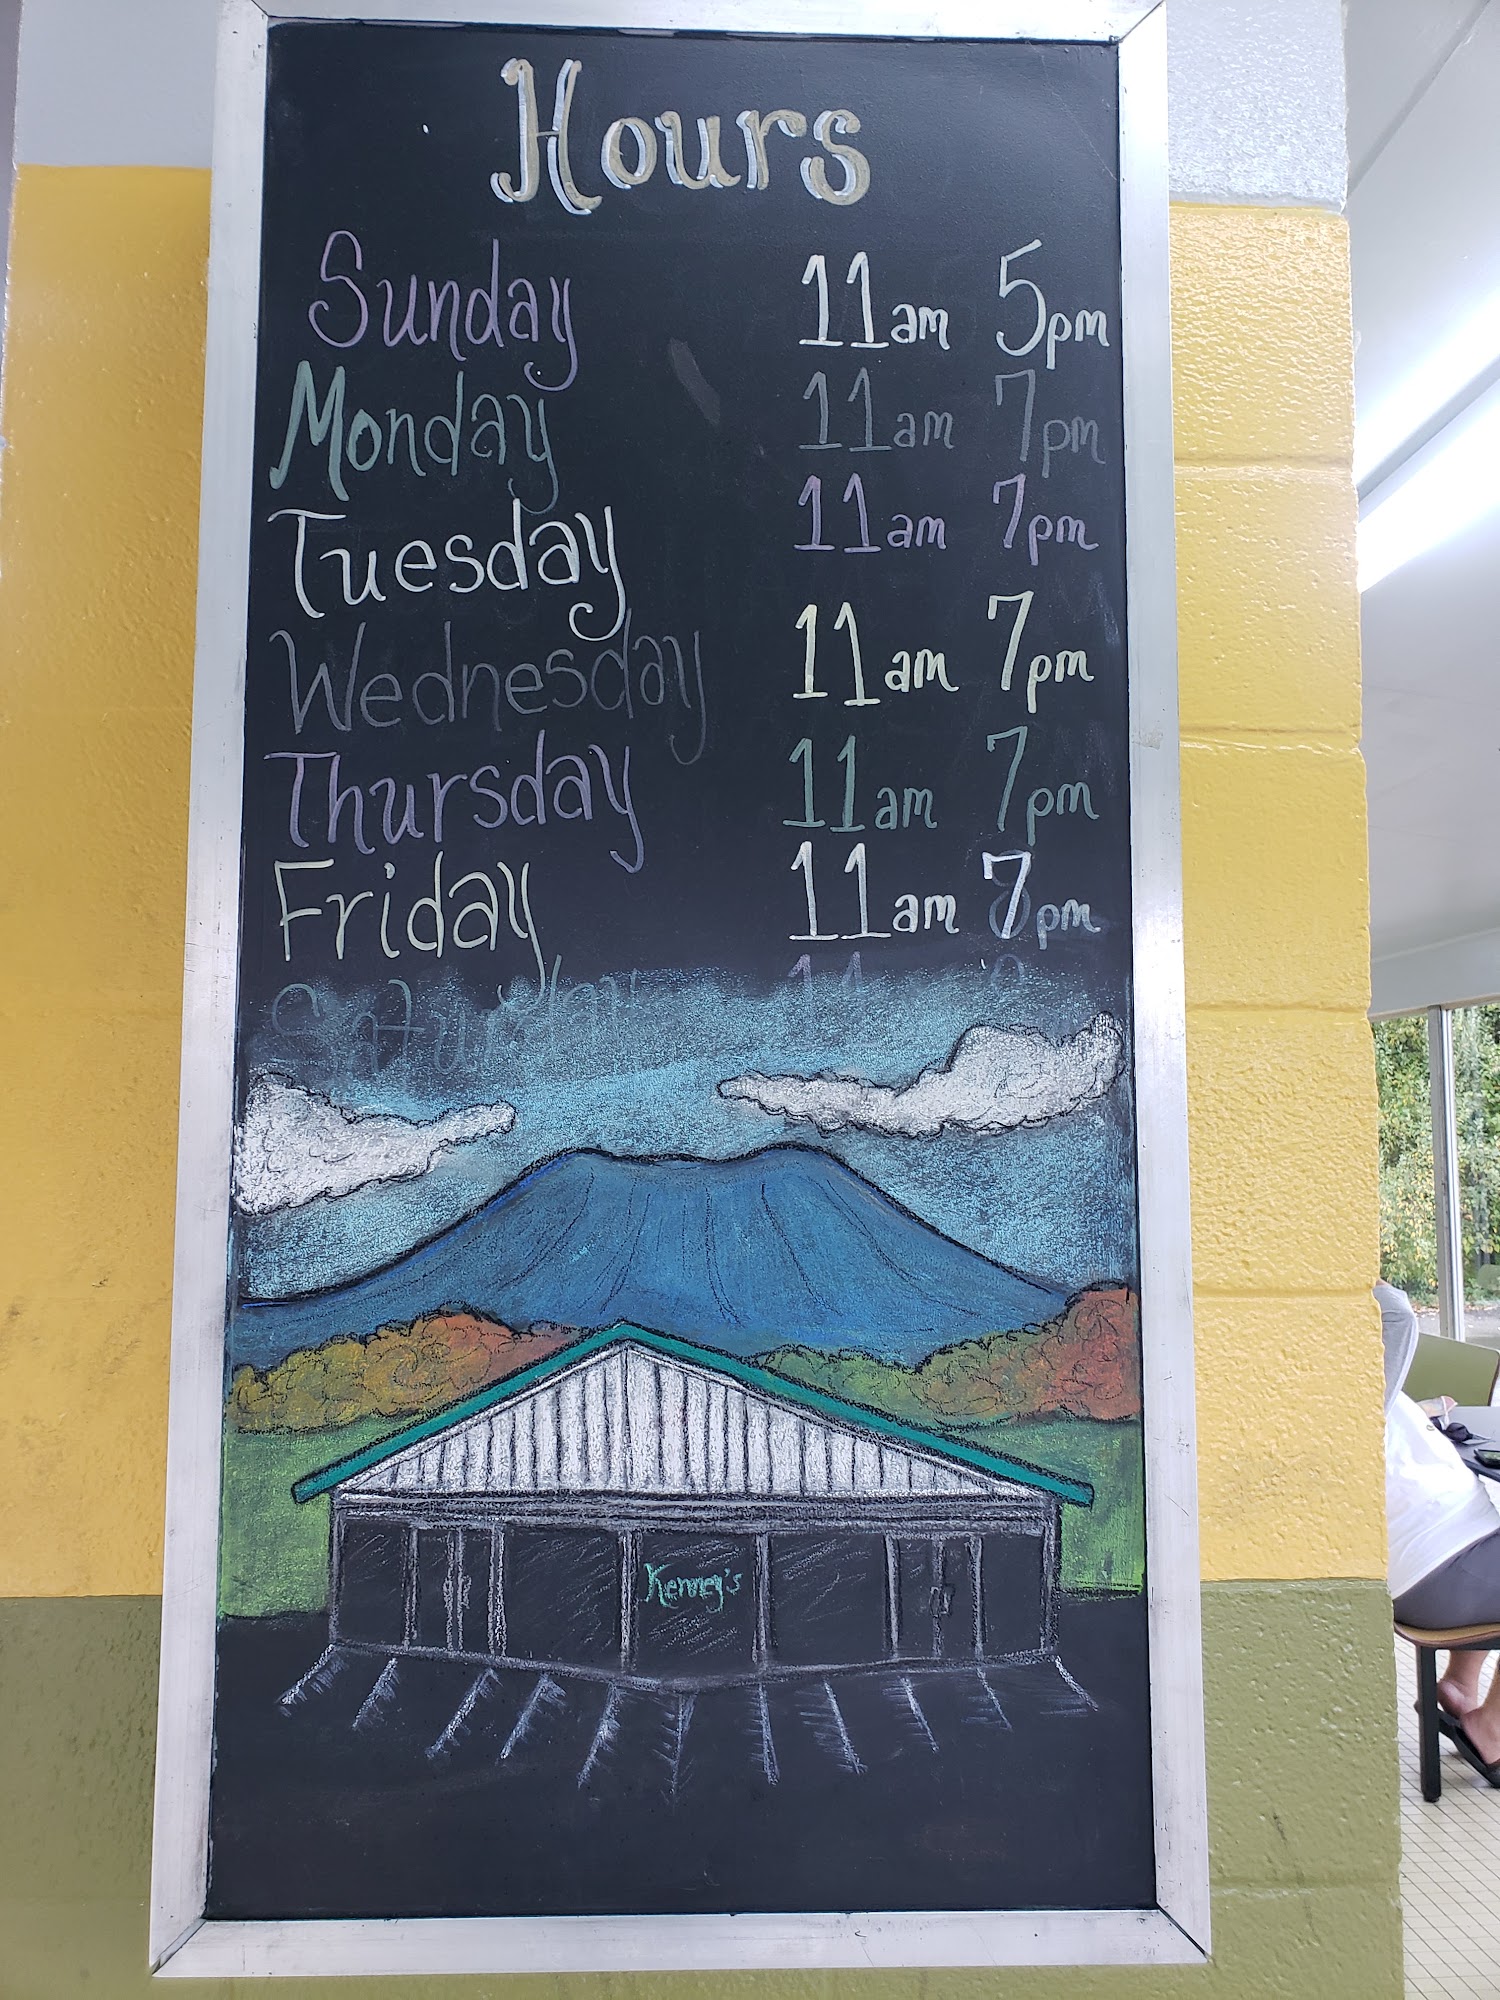 Hours
Sunday 11am 5pm
Monday 11am 7pm
Tuesday 11am 7pm
Wednesday 11am 7pm
Thursday 11am 7pm
Friday 11am 7pm
Saturday 11
Kenney's